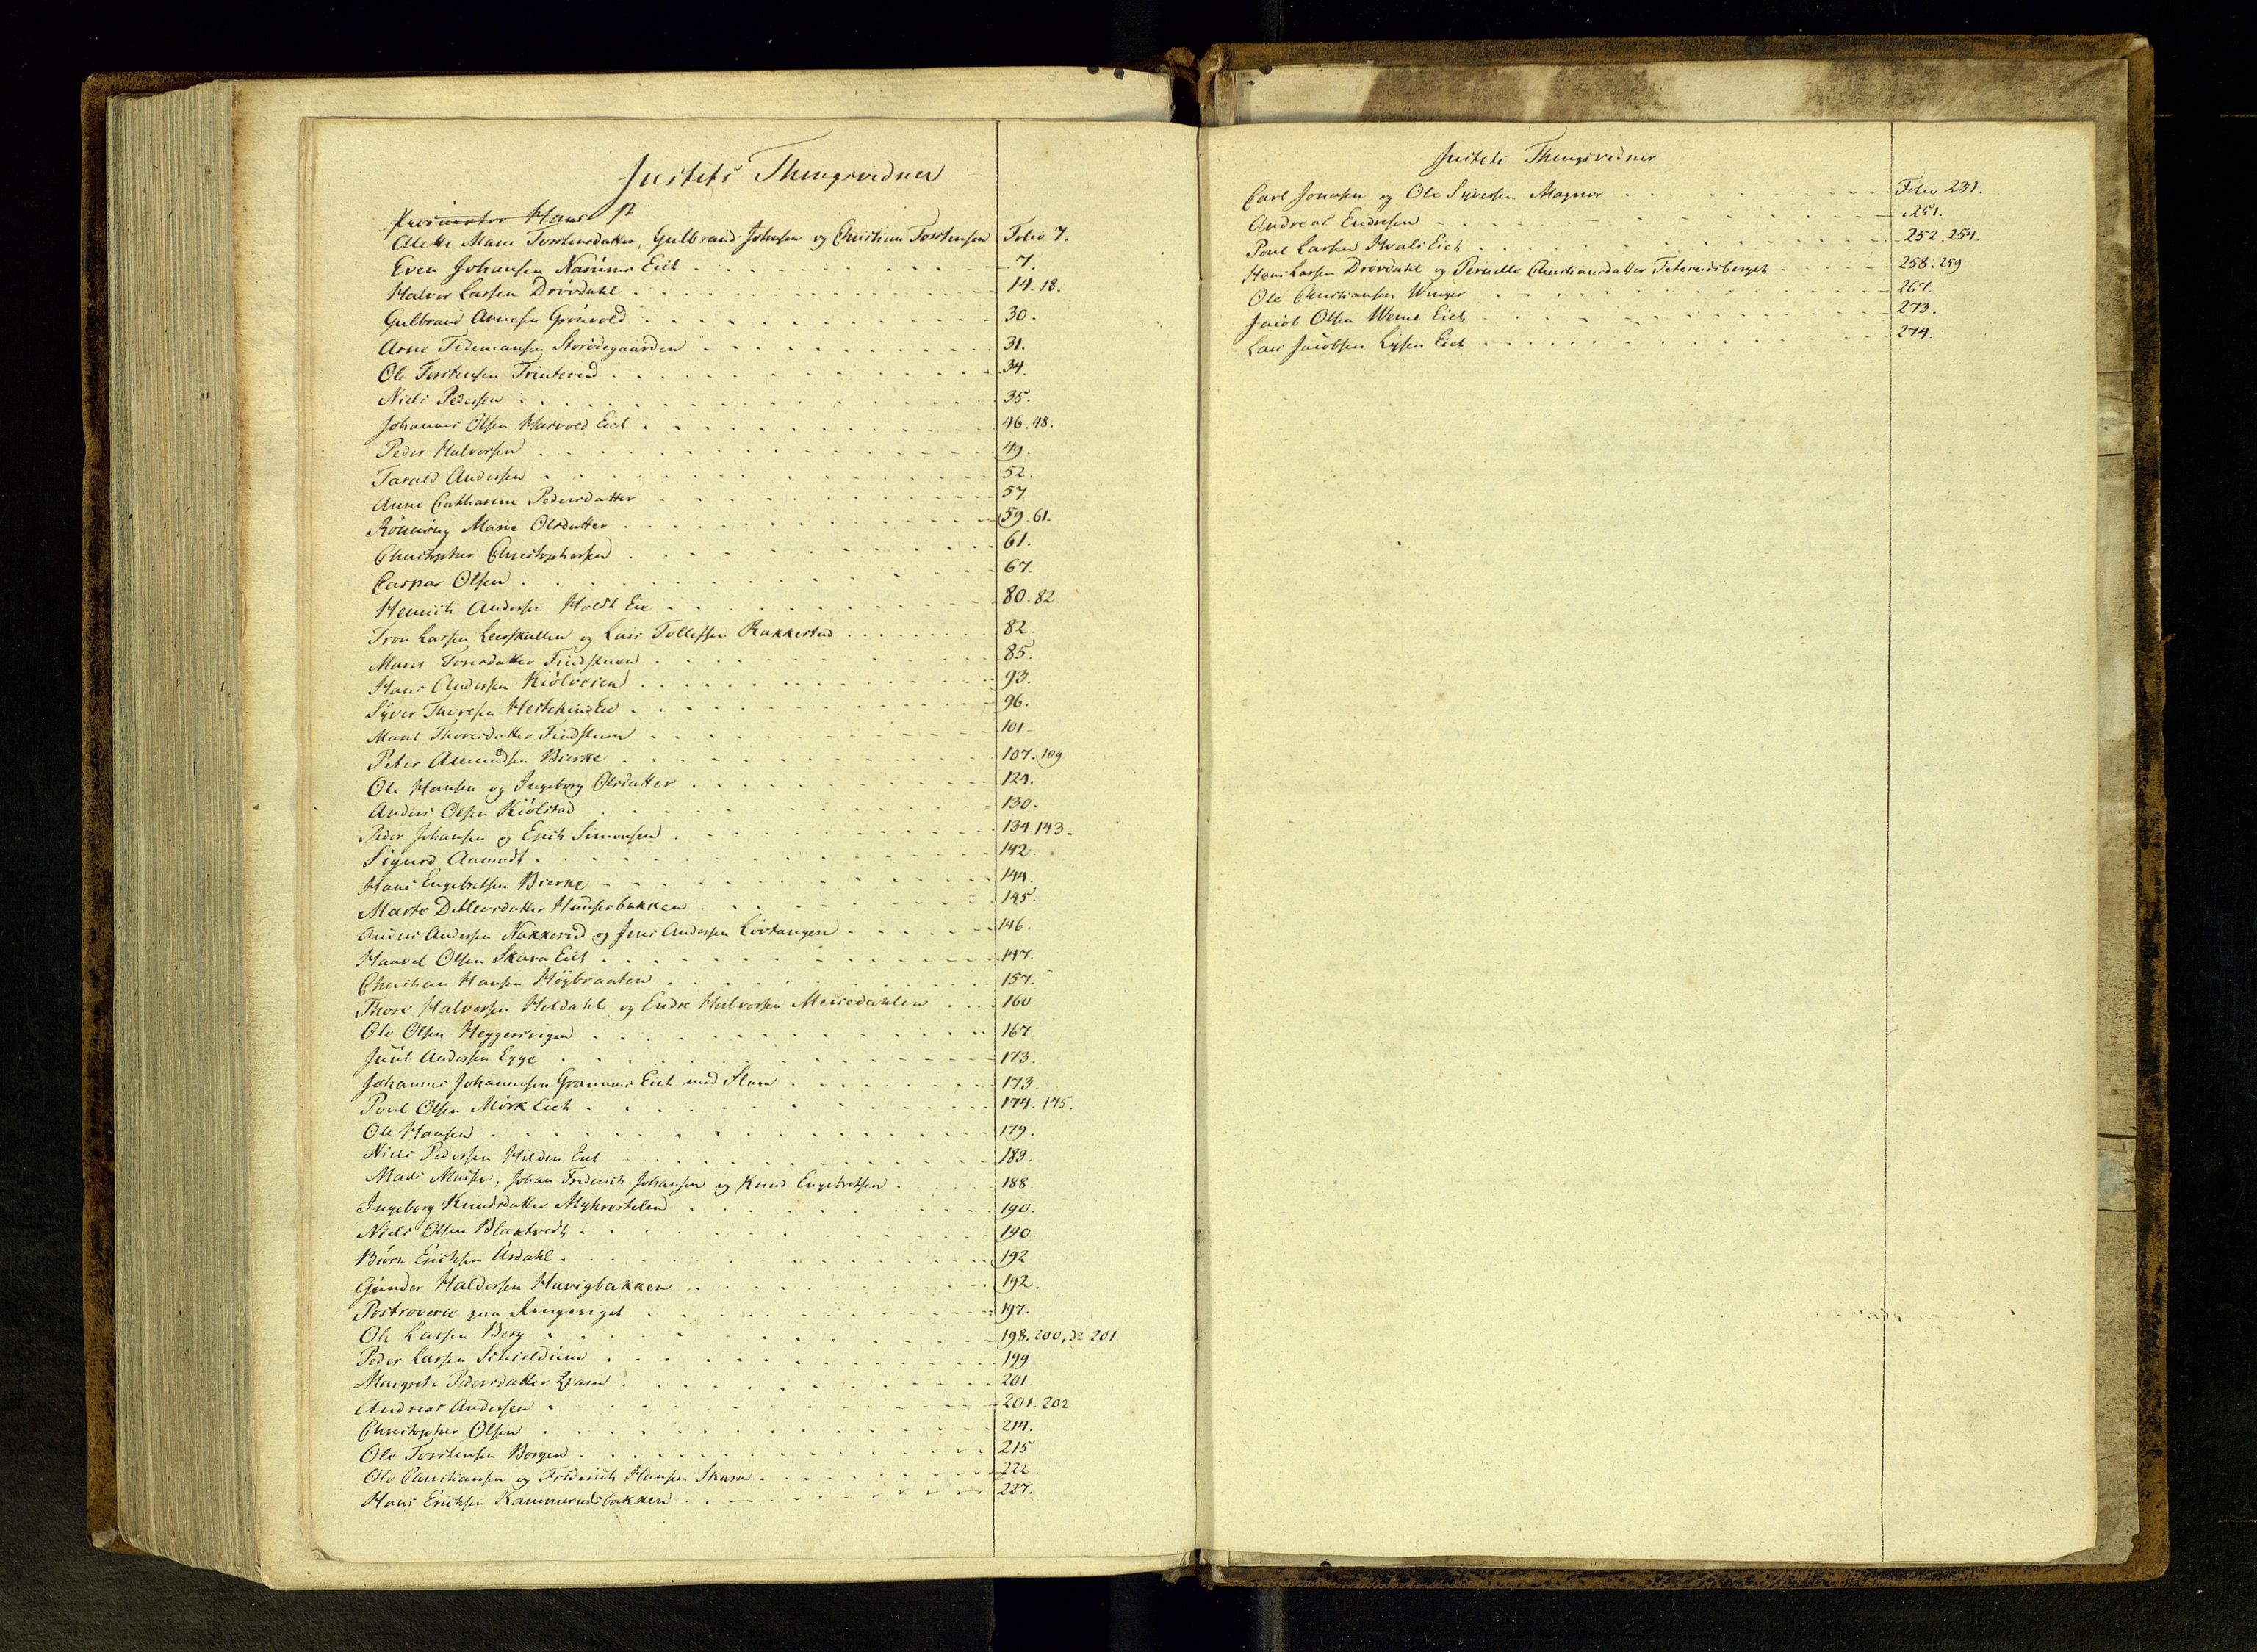 Justits Thingsvidner
Procurator Hans
Alette Marie Torstensdatter, Gulbrand Johnsen og Christian Torstensen Folio 7.
Even Johansen Narums Eiet 7.
Halvor Larsen Drövdahl 14. 18.
Gulbrand Arnesen Grønvold 30.
Arne Tidemansen Storödegaarden 31.
Ole Torstensen Trinterud 34.
Niels Pedersen 35.
Johannes Olsen Harvold Eiet 46. 48.
Peder Halvorsen 49.
Tarald Andersen 52.
Anne Catharine Pedersdatter 57
Rönnöug Marie Olsdatter 59. 61.
Christopher Christophersen 61.
Caspar Olsen 67.
Henrich Andersen Holdt Eie 80. 82
Tron Larsen Leerskallen og Lars Tollefsen Rakkestad 82.
Maret Toresdatter Findstuen 85.
Hans Andersen Kiölveien 93.
Syver Thoresen 96.
Marit Thoresdatter Findstuen 101
Peter Amundsen Bierke 107. 109
Ole Hansen og Ingeborg Olsdatter 124.
Anders Olsen Kiölstad 130.
Peder Johansen og Erich Simonsen 134. 143
Sigurd Aamodt 142.
Hans Engebretsen Bierke 144.
Marte Ditlevsdatter Hunserbakken 145
Anders Andersen Nakkerud og Jens Andersen Livtangen 146.
Haavel Olsen Skara Eiet 147.
Christian Hansen Högbraaten 157.
Thore Halvorsen Holdahl og Endre Halvorsen Meisedahlen 160
Ole Olsen Heggersvigen 167.
Juul Andersen Egge 173.
Johannes Johannesen Granums Eiet med Flere 173.
Poul Olsen Mörk Eiet 174. 175.
Ole Hansen 179.
Niels Pedersen Hilden Eiet 183.
Mads Madsen, Johan Friderich Johansen og Knud Engebretsen 188
Ingeborg Knudsdatter Myhrestølen 190.
Niels Olsen Blaktvedt 190
Biörn Erichsen Aasdahl 192
Gunder Haldorsen Havigbakken 192.
Postroverie paa Ringeriget 197.
Ole Larsen Berg 198. 200, do 201
Peder Larsen Schieldum 199
Margrete Pedersdatter Hjam 201
Andreas Andersen 201. 202
Christopher Olsen 214.
Ole Torstensen Borgen 215
Ole Christiansen og Friderich Hansen Skara 222.
Hans Erichsen Kammerudsbakken 227.
Justits Thingsvidner
Carl Jonasen og Ole Syversen Magnor Folio 231.
Andreas Endresen 251.
Poul Larsen Hvals Eiet 252. 254.
Hans Larsen Drövdahl og Pernille Christiansdatter Peterudsberget 258. 259
Ole Christiansen Winger 267.
Jacob Olsen Werne Eiet 273.
Lars Jacobsen Lysen Eiet 274.